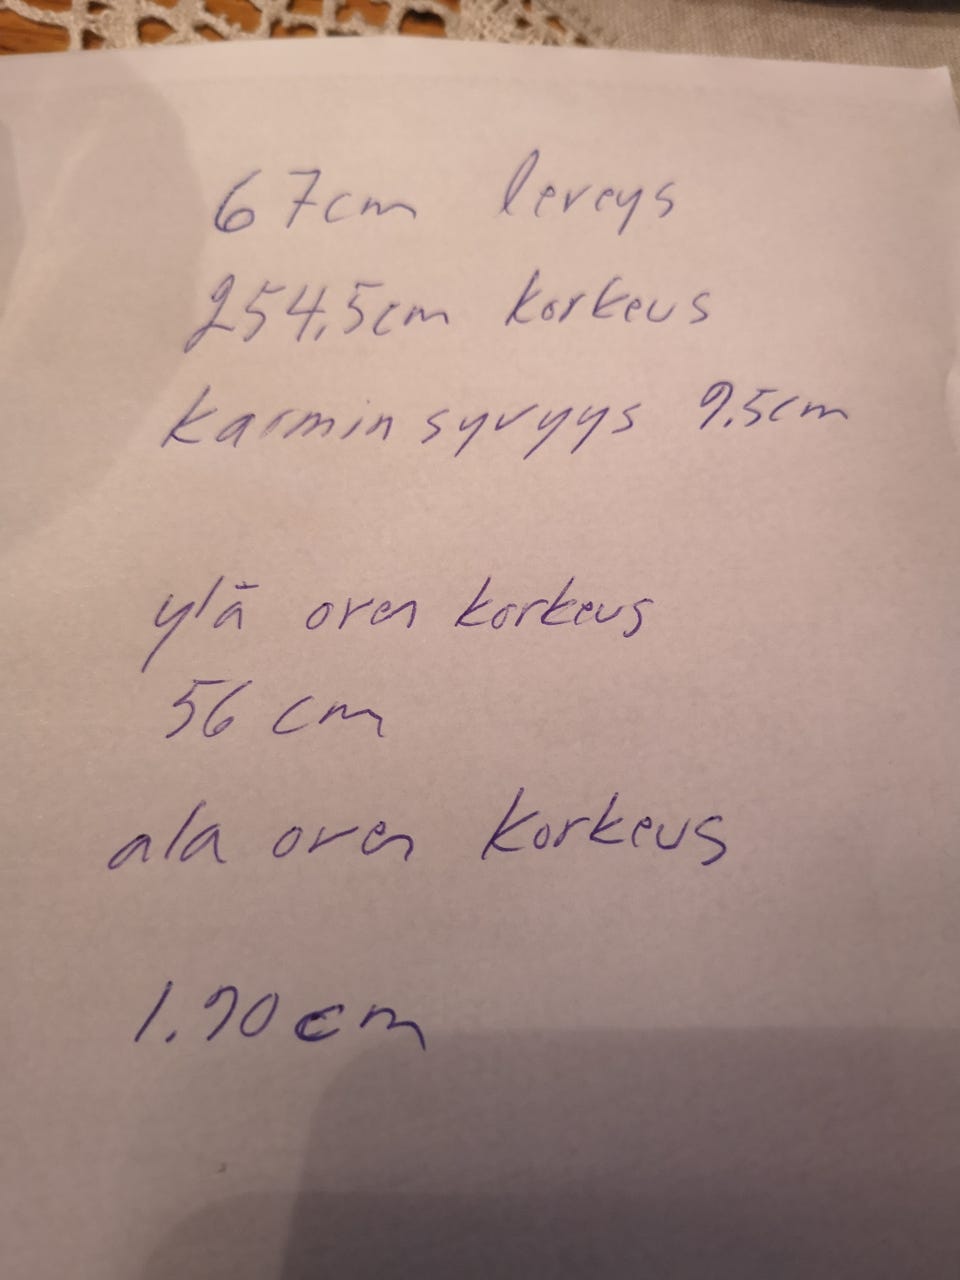 67cm leveys
254,5cm korkeus
karmin syvyys 9.5cm
ylä oven korkeus
56 cm
ala oven korkeus
1.90cm